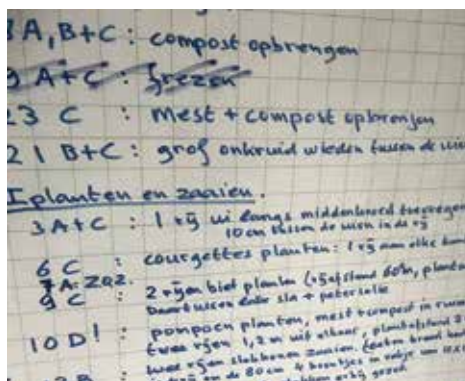 A, B+C : compost opbrengen
9 A+C : frezen
23 C : mest + compost opbrengen
21 B+C : grof onkruid wieden tussen de
Inplanten en zaaien.
3 A+C : 1 rij ui langs middenboord toevoegen
10 cm tussen de uien in de rij
6 C : courgettes planten: 1 rij aan elke
7 A: ZOZ.
9 C : 2 rijen biet planten (rijafstand 60cm,
Daartussen rode sla + peterselie
10 D! : pompoen planten, mest + compost in
twee rijen 1,2 m uit elkaar, plantafstand
twee rijen slabonen zaaien.
80 cm 4 boontjes in